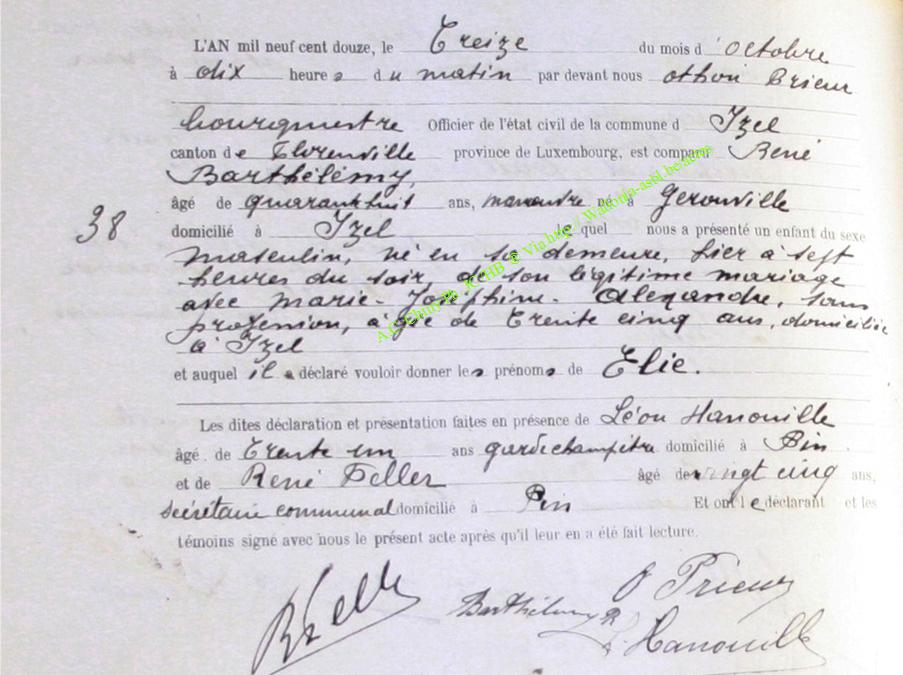 L'AN mil neuf cent douze, le Treize du mois d'Octobre
à dix heures du matin par devant nous Othon Prieur
bourgmestre Officier de l'état civil de la commune d Izel
canton de Florenville province de Luxembourg, est comparu René
Barthélémy,
âgé de quarante huit ans, manœuvre né à Gérouville
domicilié à Izel lequel nous a présenté un enfant du sexe
38
masculin, né en sa demeure, hier à sept
heures du soir de son légitime mariage
avec Marie-Joséphine Alexandre, sans
profession, âgée de trente cinq ans, domiciliée
à Izel
et auquel il a déclaré vouloir donner les prénoms de Elie.
Les dites déclaration et présentation faites en présence de Léon Hanouille
âgé de trente un ans garde champêtre domicilié à Pin
et de René Feller âgé de vingt cinq ans,
secrétaire communal domicilié à Pin Et ont le déclarant et les
témoins signé avec nous le présent acte après qu'il leur en a été fait lecture.
O Prieur
RFeller
Barthélemy R
L. Hanouille